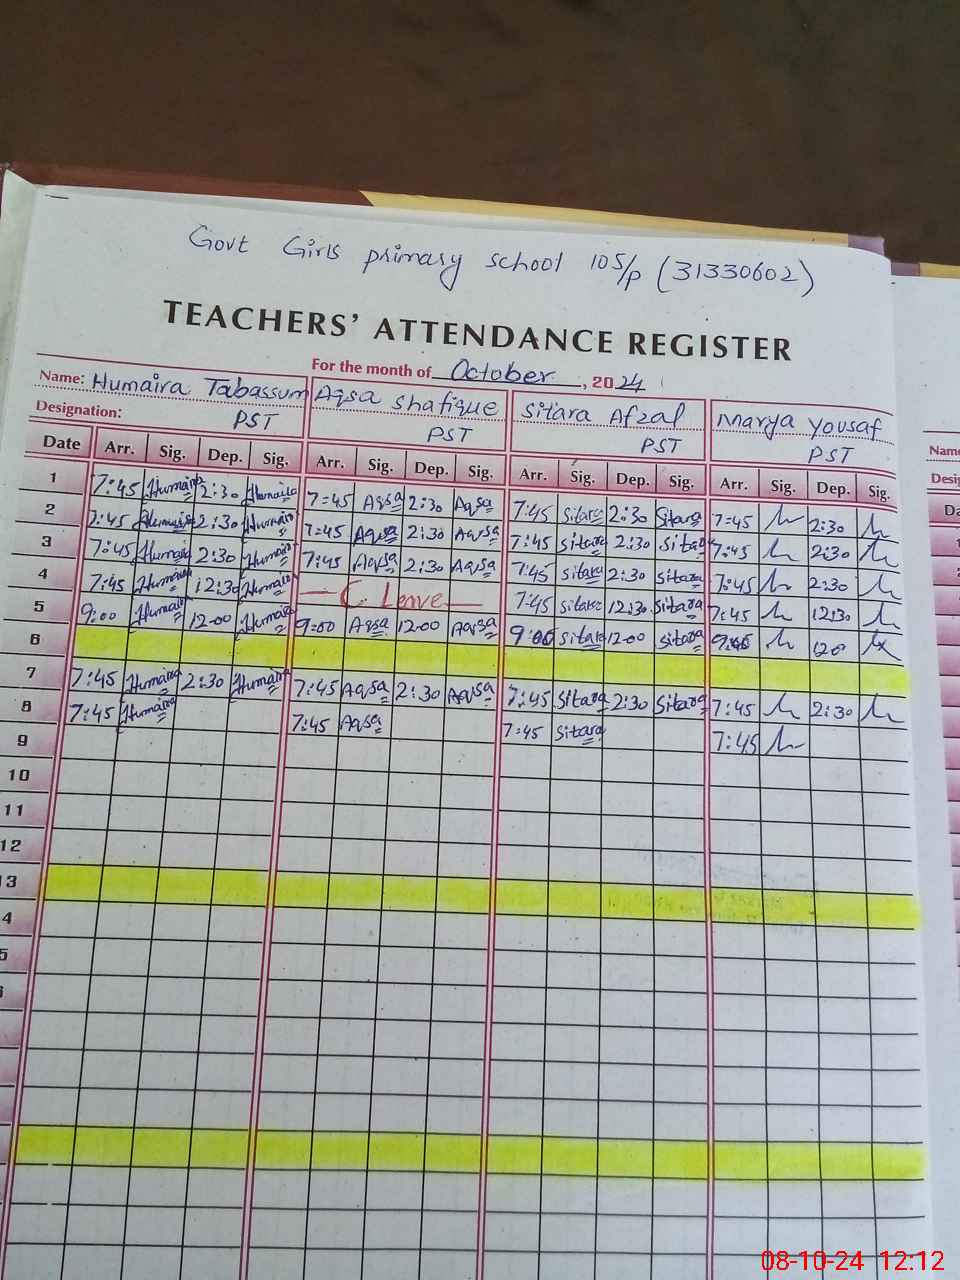 Govt Girls primary school 105/p (31330602)
TEACHERS' ATTENDANCE REGISTER
For the month of October, 2024
Name: Humaira Tabassum Aqsa Shafique Sitara Afzal Marya Yousaf
Designation: PST PST PST PST
Date Arr. Sig. Dep. Sig. Arr. Sig. Dep. Sig. Arr. Sig. Dep. Sig. Arr. Sig. Dep. Sig.
1 7:45 Humaira 2:30 Humaira 7:45 Aqsa 2:30 Aqsa 7:45 Sitara 2:30 Sitara 7:45 2:30
2 7:45 Humaira 2:30 Humaira 7:45 Aqsa 2:30 Aqsa 7:45 Sitara 2:30 Sitara 7:45 2:30
3 7:45 Humaira 2:30 Humaira 7:45 Aqsa 2:30 Aqsa 7:45 Sitara 2:30 Sitara 7:45 2:30
4 7:45 Humaira 12:30 Humaira C Leave 7:45 Sitara 12:30 Sitara 7:45 12:30
5 9:00 Humaira 12:00 Humaira 9:00 Aqsa 12:00 Aqsa 9:00 Sitara 12:00 Sitara
6
7 7:45 Humaira 2:30 Humaira 7:45 Aqsa 2:30 Aqsa 7:45 Sitara 2:30 Sitara 7:45 2:30
8 7:45 Humaira 7:45 Aqsa 7:45 Sitara 7:45
9
10
11
12
13
4
5
Name
Desig
Da
08-10-24 12:12